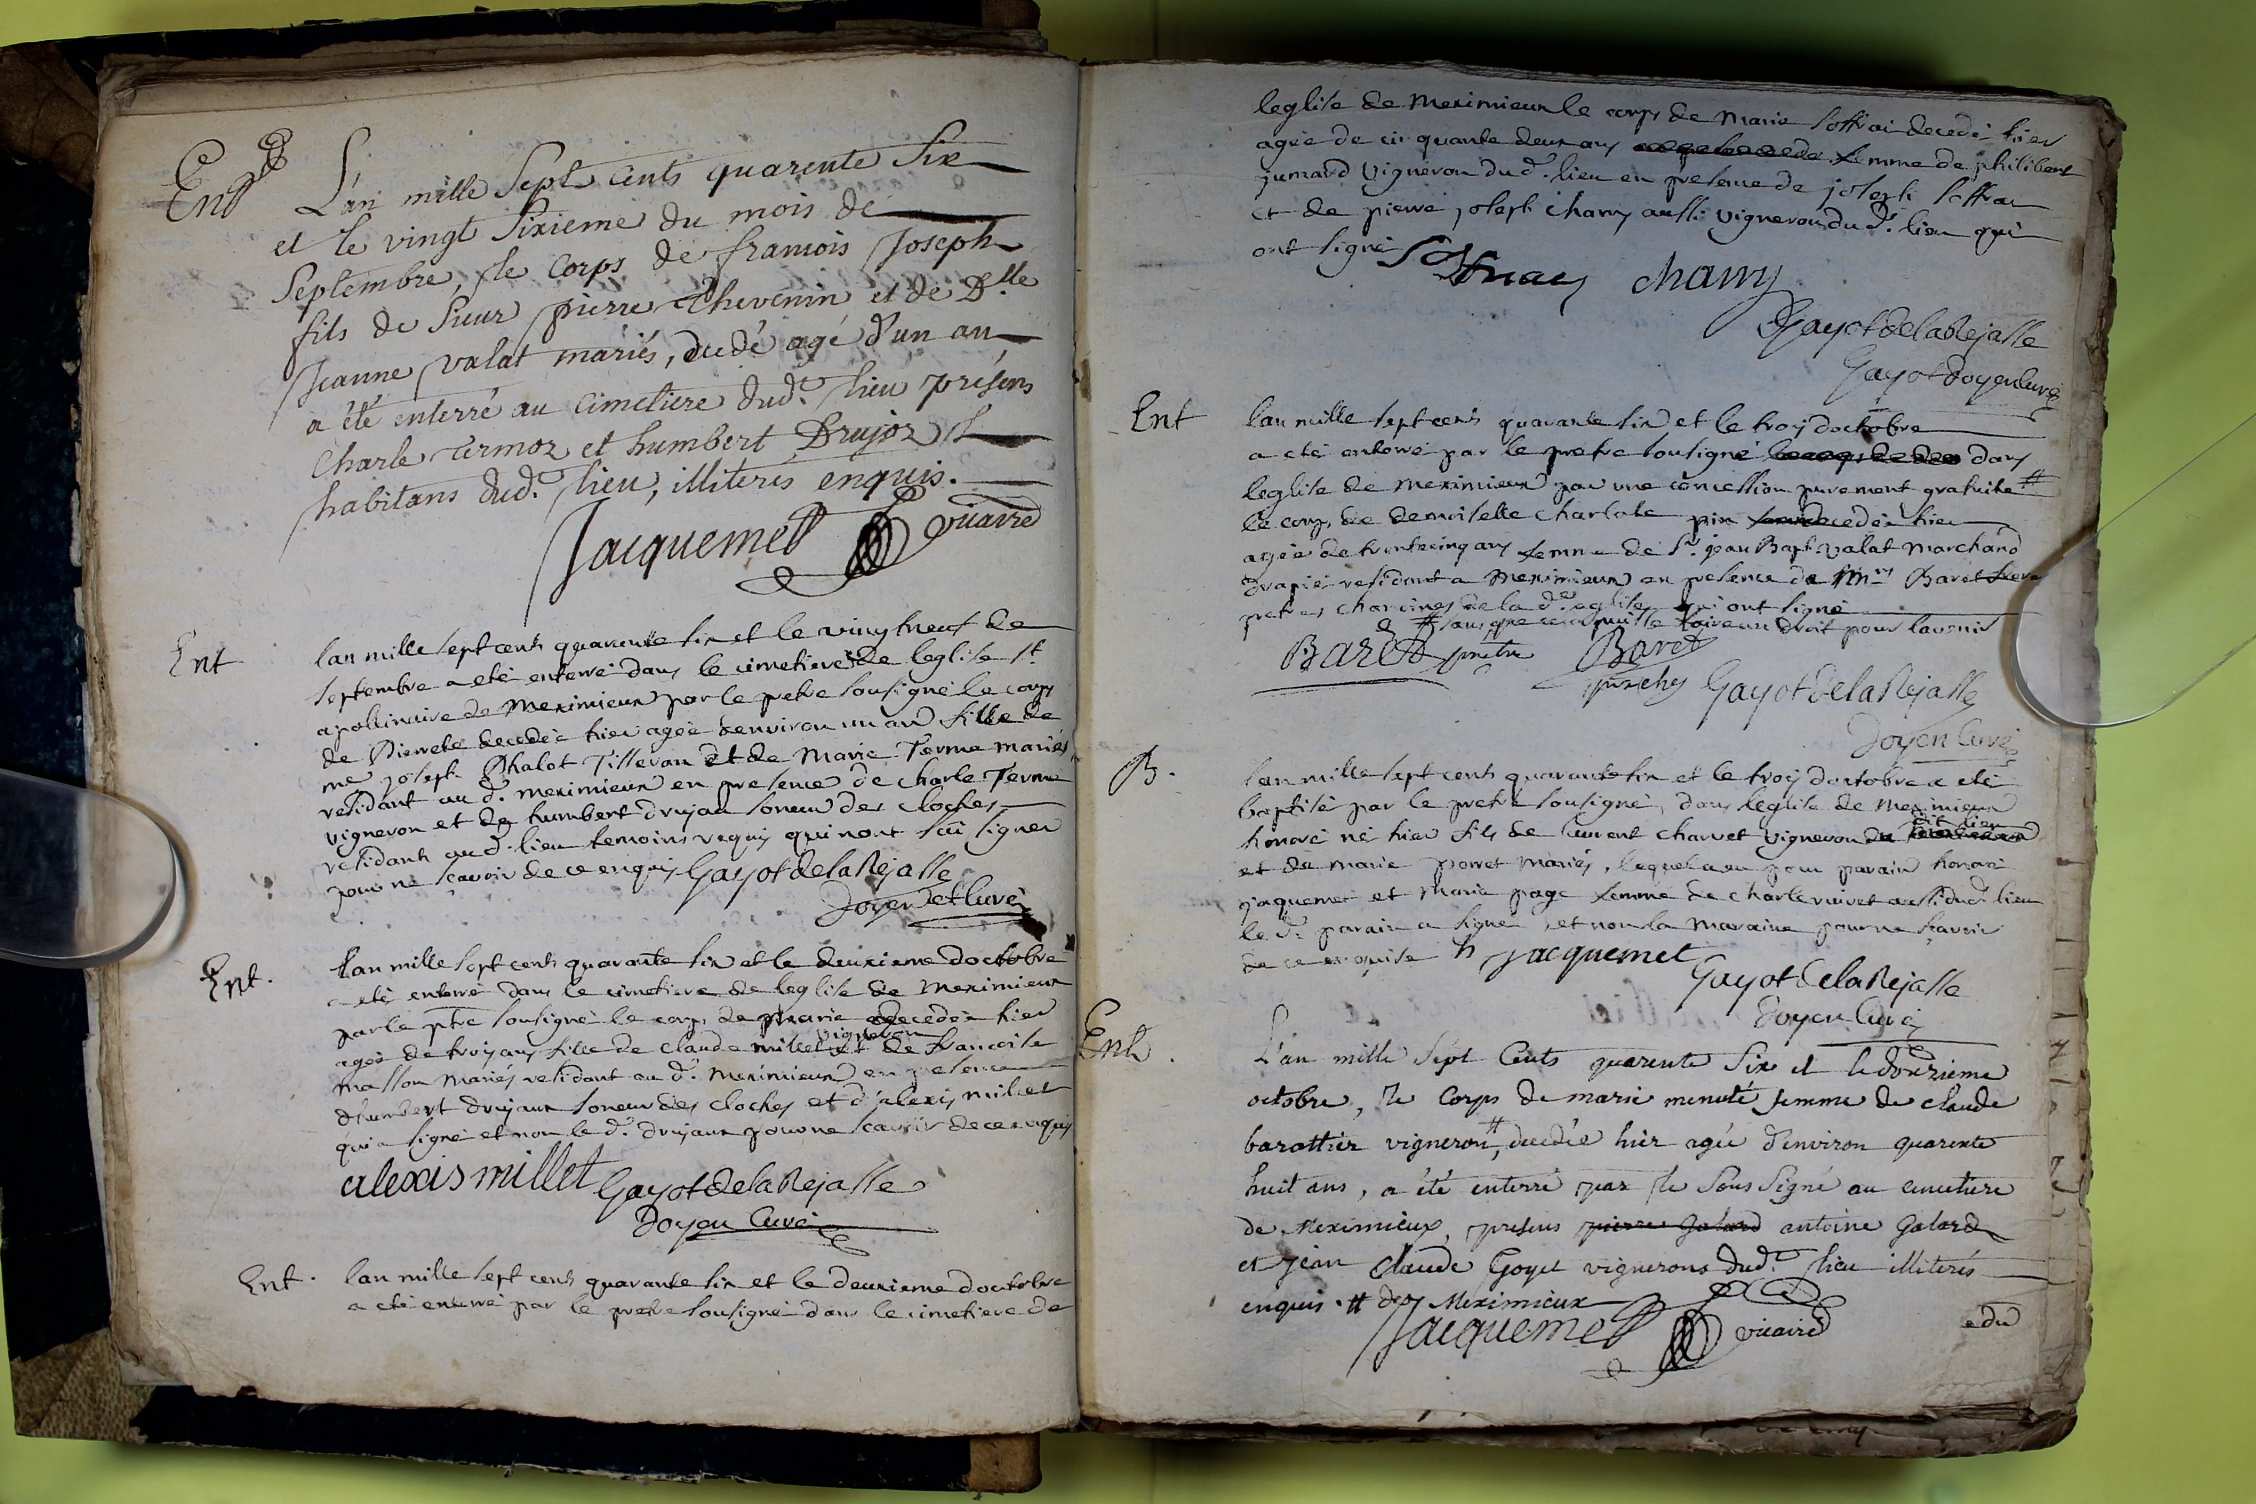 Ent
L'an mille Sept cents quarente Six
et le vingt Sixieme du mois de
Septembre, le Corps de francois Joseph
fils de Sieur pierre Thevenin et de D.lle
Jeanne valat mariés, decedé agé d'un an
a été enterré au Cimetiere dud.t lieu présens
Charle Termoz et humbert Drujoz
habitans dud.t lieu, illiterés enquis.
Jacquemet vicaire
Ent
lan mille sept cents quarante six et le vingt neuf de
septembre a eté enterré dans le cimetiere de leglise st
apollinaire de Meximieux par le pretre sousigné le corps
de Pierrete decedée hier agée denviron un an fille de
me joseph Chalot Tisseran et de Marie Terme mariés
residant au d. meximieux en presence de charle Terme
vigneron et de humbert drujau soneur des cloches
residants au d. lieu temoins requis qui nont sçu signer
pour ne scavoir de ce enquis Gayot de la Rejasse
Doyen et Curé
Ent.
lan mille sept cents quarante six et le deuxieme doctobre
a eté enterré dans le cimetiere de leglise de Meximieux
par le ptre sousigné le corps de marie decedée hier
vigneron
agée de trois ans fille de Claude millet et de francoise
masson mariés residant au d. meximieux en presence
d'humbert drujaux soneur des cloches et d'alexis millet
qui a signé et non le d. drujaux pour ne scavoir de ce enquis
alexis millet Gayot de la Rejasse
Doyen Curé
Ent.
lan mille sept cents quarante six et le deuxieme doctobre
a eté enterré par le pretre sousigné dans le cimetiere de
leglise de meximieux le corps de Marie soffrai decedé hier
agée de cinquante deux ans femme de philibert
jumard vigneron du d. lieu en presence de joseph soffrai
et de pierre joseph charvy aussi vignerons du d. lieu qui
ont signé
charvy
Gayot de la Rejasse
Gayot doyen curé
Ent
lan mille sept cents quarante six et le trois doctobre
a eté enterré par le pretre sousigné dans
leglise de meximieux par une concession purement gratuite #
le corps de demoiselle charlote pin decedée hier
agée de trente cinq ans femme de Sr. jean Bapt. valat marchand
drapié residant a Meximieux en presence de Mrs Baret frere
pretres chanoines de la d. eglise qui ont signé
# sans que cecy puisse faire un droit pour lavenir
Baret pretre Baret
Gayot de la Rejasse
Doyen Curé
B.
lan mille sept cents quarante six et le trois doctobre a eté
baptisé par le pretre sousigné, dans leglise de meximieux
dit lieu
honoré né hier fils de laurent charvet vigneron du
et de marie porret mariés, lequel a eu pour parain honoré
jaquemet et Marie page femme de charle vuivet aussi du d. lieu
le d. parain a signé et non la maraine pour ne scavoir
de ce enquise h jacquemet
Gayot de la Rejasse
Doyen Curé
Ent.
L'an mille Sept Cents quarente Six et le douzieme
octobre, le Corps de marie menuté femme de claude
barattier vigneron #, decedée hier agée d'environ quarente
huit ans, a été enterré par le Sous Signé au cimetiere
de Meximieux, presens pierre Galard antoine Galard
et jean Claude Goyet vignerons dud.t lieu illiterés
enquis. # de Meximieux
Jacquemet vicaire